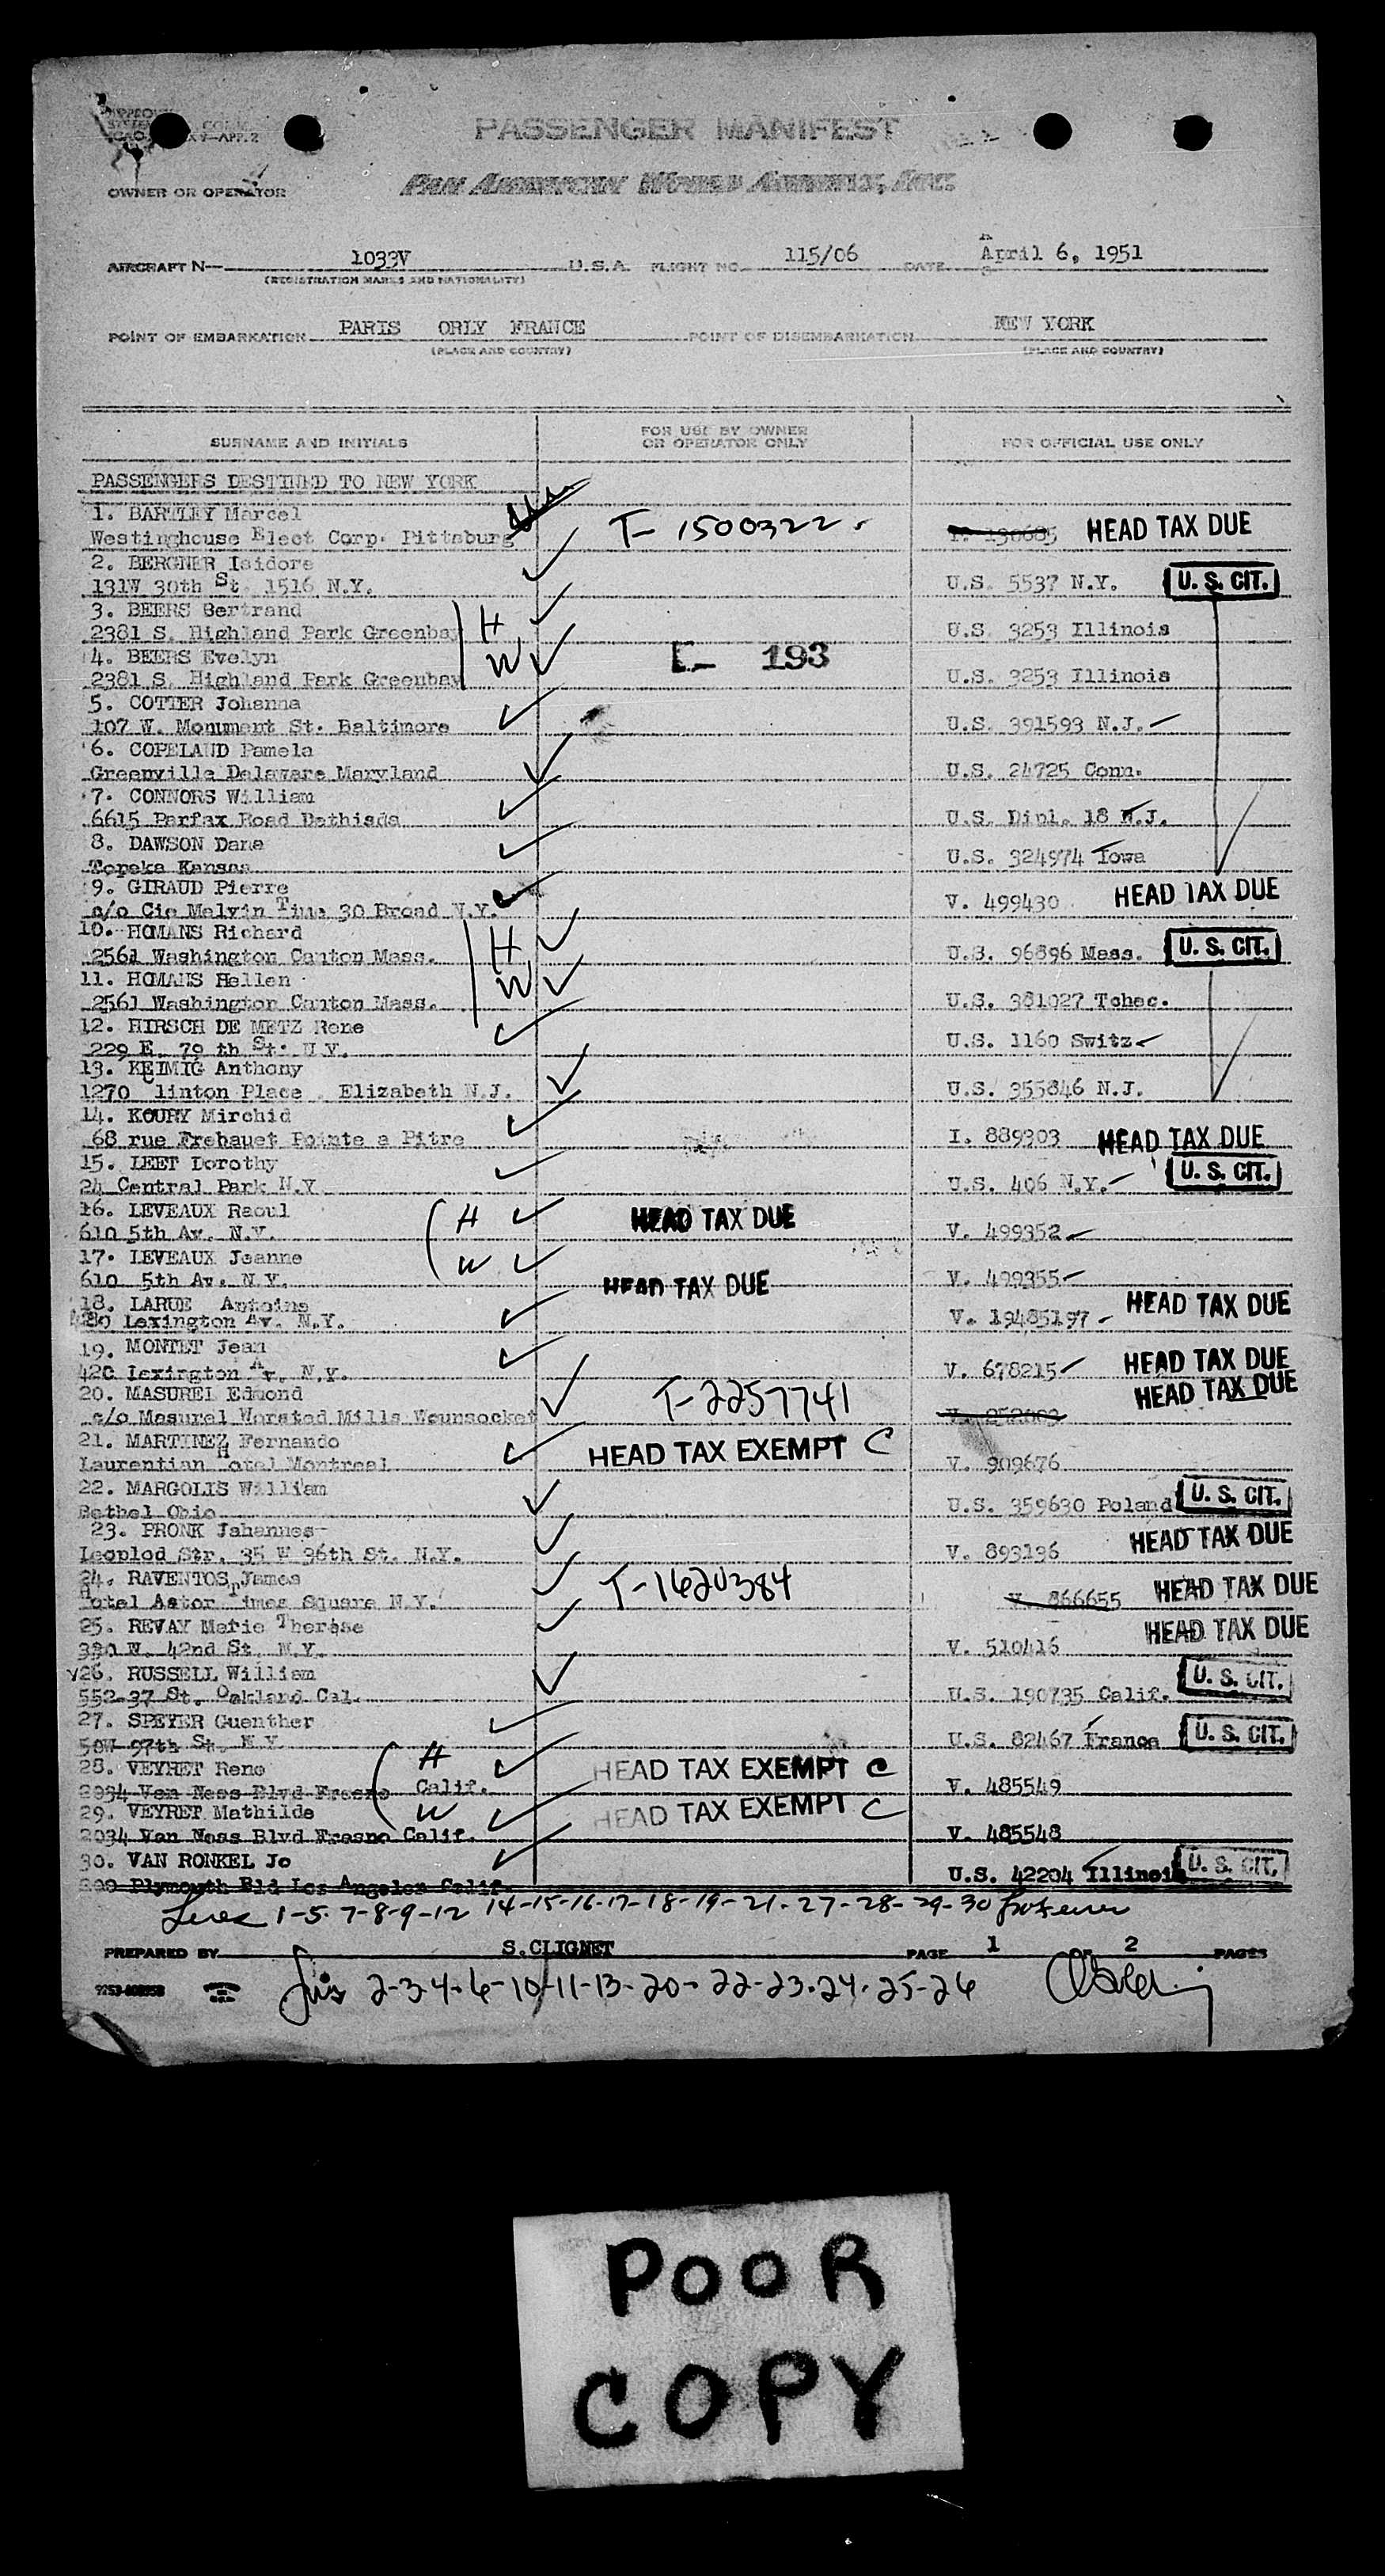 PASSENGER MANIFEST
OWNER OR OPERATOR
PAN AMERICAN WORLD AIRWAYS, INC.
AIRCRAFT N— 1033V U.S.A. FLIGHT NO. 115/06 DATE April 6, 1951
(REGISTRATION MARKS AND NATIONALITY)
POINT OF EMBARKATION PARIS ORLY FRANCE POINT OF DISEMBARKATION NEW YORK
(PLACE AND COUNTRY) (PLACE AND COUNTRY)
SURNAME AND INITIALS FOR USE BY OWNER OR OPERATOR ONLY FOR OFFICIAL USE ONLY
PASSENGERS DESTINED TO NEW YORK
1. BARTLEY Marcel
Westinghouse Elect Corp. Pittsburg T-1500322. HEAD TAX DUE
2. BERGNER Isidore
131W 30th St. 1516 N.Y. U.S. 5537 N.Y. U. S. CIT.
3. BEERS Bertrand
2381 S. Highland Park Greenbay H U.S. 3253 Illinois
4. BEERS Evelyn
2381 S. Highland Park Greenbay W 193 U.S. 3253 Illinois
5. COTTER Johanna
107 W. Monument St. Baltimore U.S. 391593 N.J.
6. COPELAND Pamela
Greenville Delaware Maryland U.S. 24725 Conn.
7. CONNORS William
6615 Parfax Road Bethisda U.S. Dipl. 18 N.J.
8. DAWSON Dane
Topeka Kansas U.S. 324974 Iowa
9. GIRAUD Pierre
c/o Cie Melvin 30 Broad N.Y. V. 499430 HEAD TAX DUE
10. HOMANS Richard
2561 Washington Canton Mass. H U.S. 96896 Mass. U. S. CIT.
11. HOMANS Hellen
2561 Washington Canton Mass. W U.S. 381027 Tchec.
12. HIRSCH DE METZ Rene
229 E. 79 th St. N.Y. U.S. 1160 Switz
13. KEIMIG Anthony
1270 Clinton Place . Elizabeth N.J. U.S. 355846 N.J.
14. KOURY Mirchid
68 rue Frebauet Pointe a Pitre I. 889303 HEAD TAX DUE
15. LEET Dorothy
24 Central Park N.Y. U.S. 406 N.Y. U. S. CIT.
16. LEVEAUX Raoul
610 5th Av. N.Y. H HEAD TAX DUE V. 499352
17. LEVEAUX Jeanne
610 5th Av. N.Y. W HEAD TAX DUE V. 499355
18. LARUE Antoine
420 Lexington Av. N.Y. V. 19485197 HEAD TAX DUE
19. MONTET Jean
420 Lexington Av. N.Y. V. 678215 HEAD TAX DUE
20. MASUREL Edmond
c/o Masurel Worsted Mills Wounsocket T-2257741 HEAD TAX DUE
21. MARTINEZ Fernando
Laurentian Hotel Montreal HEAD TAX EXEMPT C V. 909676
22. MARGOLIS William
Bethel Ohio U.S. 359630 Poland U. S. CIT.
23. PRONK Jahannes
Leoplod Str. 35 W 36th St. N.Y. V. 893136 HEAD TAX DUE
24. RAVENTOS James
Hotel Astor Times Square N.Y. T-1620384 V. 866655 HEAD TAX DUE
25. REVAY Marie Therése
330 W. 42nd St. N.Y. V. 510416 HEAD TAX DUE
26. RUSSELL William
552-37 St. Oakland Cal. U.S. 190735 Calif. U. S. CIT.
27. SPEYER Guenther
50W 97th St. N.Y. U.S. 82467 France U. S. CIT.
28. VEYRET Rene
2034 Van Ness Blvd Fresno Calif. H HEAD TAX EXEMPT C V. 485549
29. VEYRET Mathilde
2034 Van Ness Blvd Fresno Calif. W HEAD TAX EXEMPT C V. 485548
30. VAN RONKEL Jo
Plymouth Bld Los Angeles Calif. U.S. 42204 Illinois U. S. CIT.
1-5-7-8-9-12 14-15-16-17-18-19-21-27-28-29-30
PREPARED BY S.CLIGNET PAGE 1 OF 2 PAGES
2-3-4-6-10-11-13-20-22-23-24-25-26
POOR
COPY